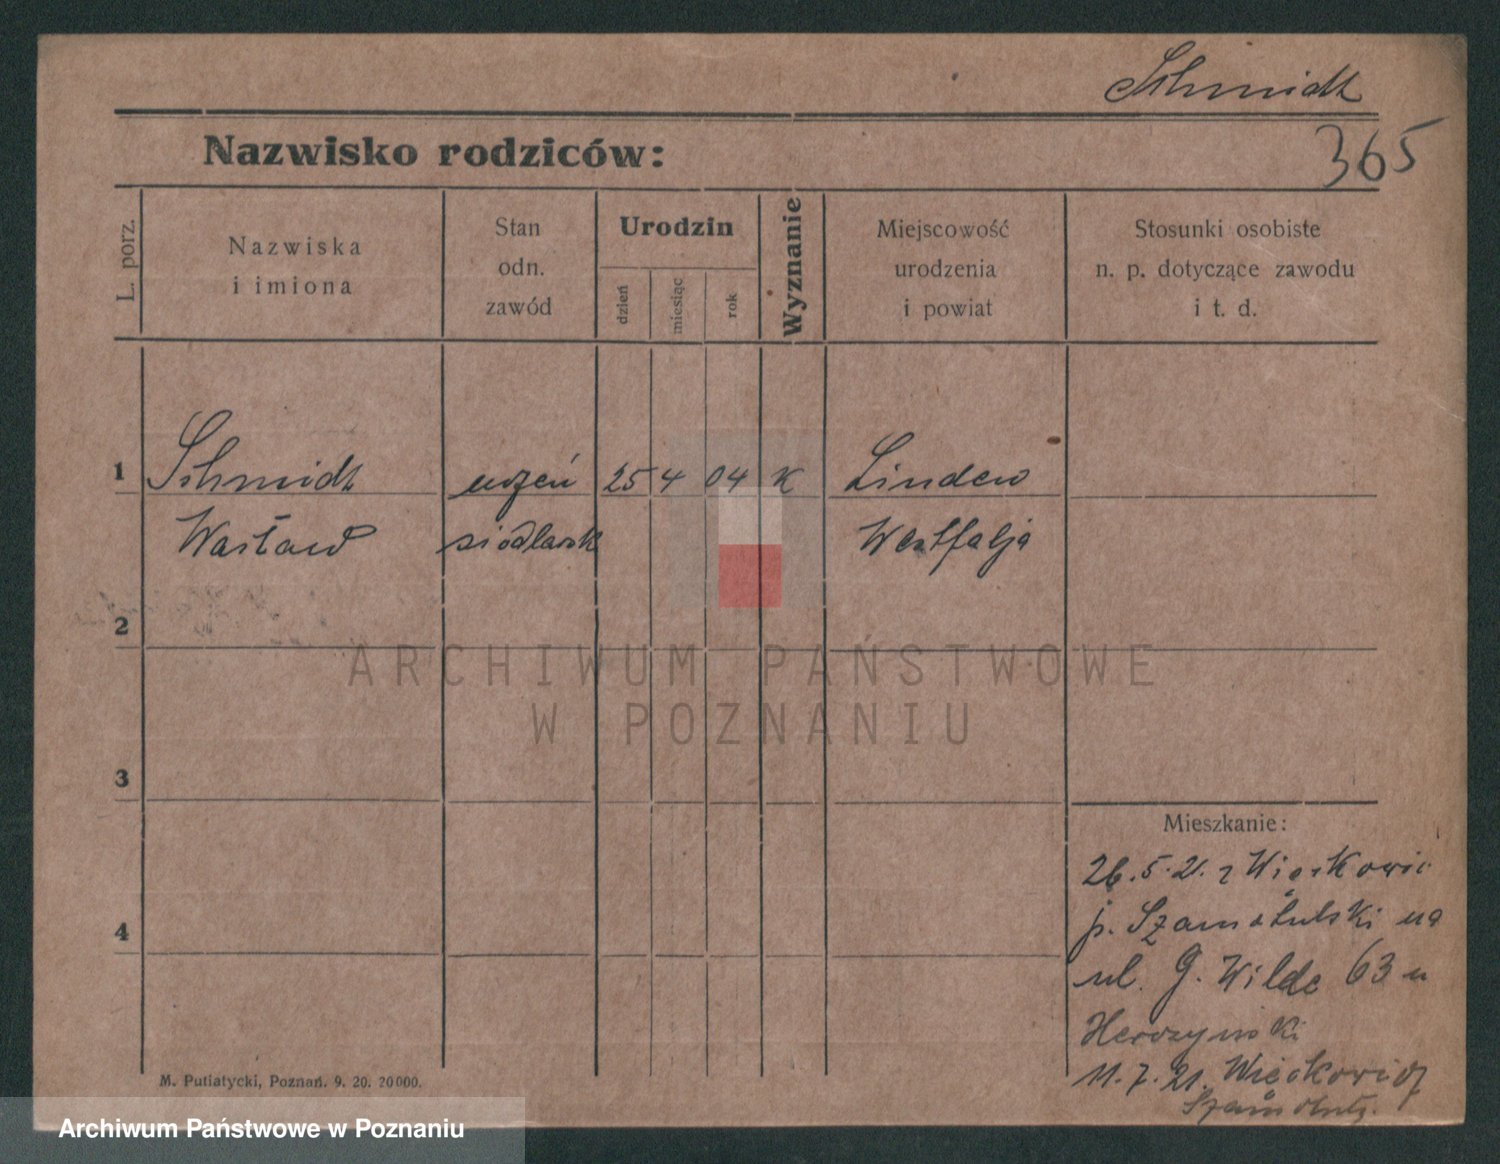 Schmidt
365
Nazwisko rodziców:
L. porz.
Nazwiska
i imiona
Stan
odn.
zawód
Urodzin
dzień
miesiąc
rok
Wyznanie
Miejscowość
urodzenia
i powiat
Stosunki osobiste
n. p. dotyczące zawodu
i t. d.
1 Schmidt uczeń 25 4 04 K Linden
Wacław siodlarsk Westfalja
2
ARCHIWUM PAŃSTWOWE
W POZNANIU
3
4
Mieszkanie:
26.5.21. z Więckowic
p. Szamotulski na
ul. G. Wilde 63 u
11.7.21. Więckowice
Szamotuły.
M. Putiatycki, Poznań. 9. 20. 20000.
Archiwum Państwowe w Poznaniu